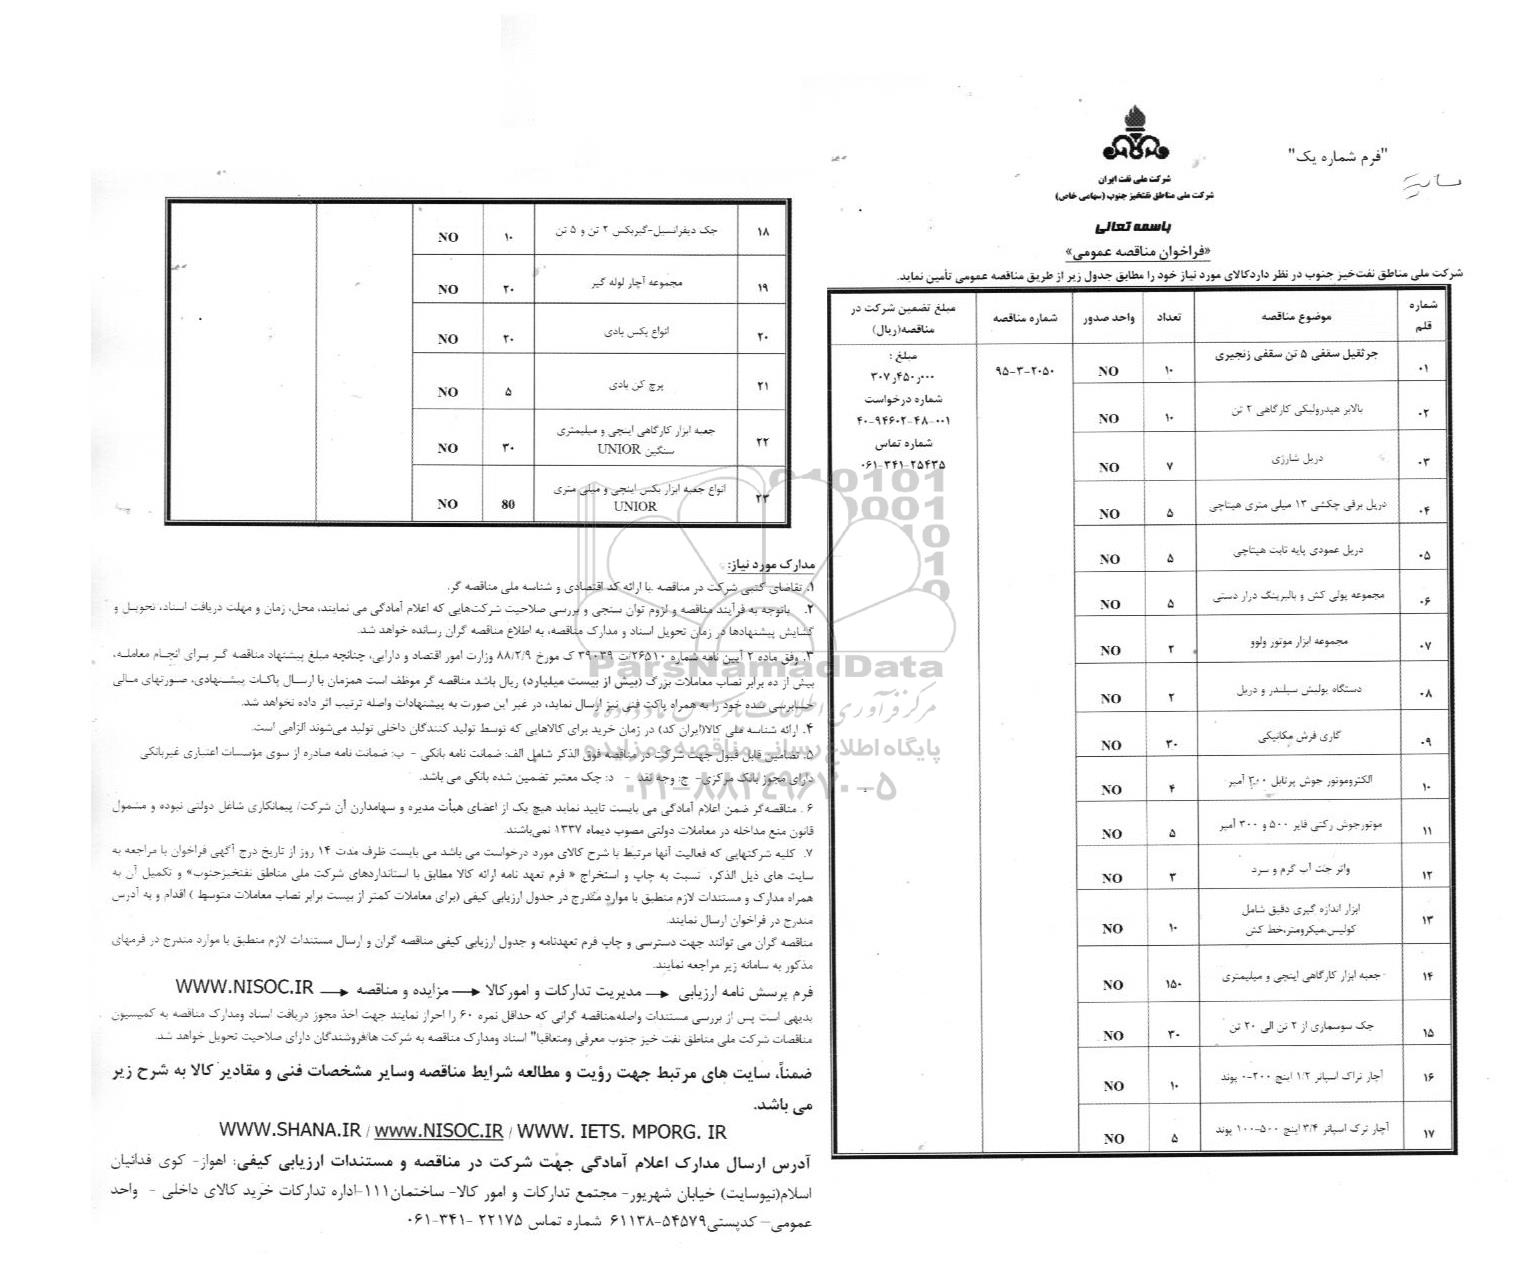 "فرم شماره یک"
شرکت ملی نفت ایران
شرکت ملی مناطق نفتخیز جنوب (سهامی خاص)
باسمه تعالی
«فراخوان مناقصه عمومی»
شرکت ملی مناطق نفت‌خیز جنوب در نظر داردکالای مورد نیاز خود را مطابق جدول زیر از طریق مناقصه عمومی تأمین نماید.
شماره قلم موضوع مناقصه تعداد واحد صدور شماره مناقصه مبلغ تضمین شرکت در مناقصه(ریال)
۰۱ جرثقیل سقفی ۵ تن سقفی زنجیری ۱۰ NO ۹۵-۳-۲۰۵۰
مبلغ :
۳۰۷٫۴۵۰٫۰۰۰
شماره درخواست
۴۰-۹۴۶۰۲-۴۸-۰۰۱
شماره تماس
۰۶۱-۳۴۱-۲۵۴۳۵
۰۲ بالابر هیدرولیکی کارگاهی ۲ تن ۱۰ NO
۰۳ دریل شارژی ۷ NO
۰۴ دریل برقی چکشی ۱۳ میلی متری هیتاچی ۵ NO
۰۵ دریل عمودی پایه ثابت هیتاچی ۵ NO
۰۶ مجموعه پولی کش و بالبرینگ درار دستی ۵ NO
۰۷ مجموعه ابزار موتور ولوو ۲ NO
۰۸ دستگاه پولیش سیلندر و دریل ۲ NO
۰۹ گاری فرش مکانیکی ۳۰ NO
۱۰ الکتروموتور جوش پرتابل ۳۰۰ آمپر ۴ NO
۱۱ موتورجوش رکتی فایر ۵۰۰ و ۳۰۰ آمپر ۵ NO
۱۲ واتر جت آب گرم و سرد ۳ NO
۱۳ ابزار اندازه گیری دقیق شامل کولیس،میکرومتر،خط کش ۱۰ NO
۱۴ جعبه ابزار کارگاهی اینچی و میلیمتری ۱۵۰ NO
۱۵ جک سوسماری از ۲ تن الی ۲۰ تن ۳۰ NO
۱۶ آچار ترک اسپانر ۱/۲ اینچ ۲۰۰-۰ پوند ۱۰ NO
۱۷ آچار ترک اسپانر ۳/۴ اینچ ۵۰۰-۱۰۰ پوند ۵ NO
۱۸ جک دیفرانسیل-گیربکس ۲ تن و ۵ تن ۱۰ NO
۱۹ مجموعه آچار لوله گیر ۲۰ NO
۲۰ انواع بکس بادی ۲۰ NO
۲۱ پرچ کن بادی ۵ NO
۲۲ جعبه ابزار کارگاهی اینچی و میلیمتری سنگین UNIOR ۳۰ NO
۲۳ انواع جعبه ابزار بکس اینچی و میلی متری UNIOR 80 NO
مدارک مورد نیاز:
۱. تقاضای کتبی شرکت در مناقصه با ارائه کد اقتصادی و شناسه ملی مناقصه گر.
۲. باتوجه به فرآیند مناقصه و لزوم توان سنجی و بررسی صلاحیت شرکت‌هایی که اعلام آمادگی می نمایند، محل، زمان و مهلت دریافت اسناد، تحویل و
گشایش پیشنهادها در زمان تحویل اسناد و مدارک مناقصه، به اطلاع مناقصه گران رسانده خواهد شد.
۳. وفق ماده ۲ آیین نامه شماره ۲۶۵۱۰/ت ۳۹۰۳۹ ک مورخ ۸۸/۲/۹ وزارت امور اقتصاد و دارایی، چنانچه مبلغ پیشنهاد مناقصه گر برای انجام معامله،
بیش از ده برابر نصاب معاملات بزرگ (بیش از بیست میلیارد) ریال باشد مناقصه گر موظف است همزمان با ارسال پاکات پیشنهادی، صورتهای مالی
حسابرسی شده خود را به همراه پاکت فنی نیز ارسال نماید، در غیر این صورت به پیشنهادات واصله ترتیب اثر داده نخواهد شد.
۴. ارائه شناسه ملی کالا(ایران کد) در زمان خرید برای کالاهایی که توسط تولید کنندگان داخلی تولید می‌شوند الزامی است.
۵. تضامین قابل قبول جهت شرکت در مناقصه فوق الذکر شامل الف: ضمانت نامه بانکی - ب: ضمانت نامه صادره از سوی مؤسسات اعتباری غیربانکی
دارای مجوز بانک مرکزی- ج: وجه نقد - د: چک معتبر تضمین شده بانکی می باشد.
۶ . مناقصه‌گر ضمن اعلام آمادگی می بایست تایید نماید هیچ یک از اعضای هیأت مدیره و سهامدارن آن شرکت/ پیمانکاری شاغل دولتی نبوده و مشمول
قانون منع مداخله در معاملات دولتی مصوب دیماه ۱۳۳۷ نمی‌باشند.
۷. کلیه شرکتهایی که فعالیت آنها مرتبط با شرح کالای مورد درخواست می باشد می بایست ظرف مدت ۱۴ روز از تاریخ درج آگهی فراخوان با مراجعه به
سایت های ذیل الذکر، نسبت به چاپ و استخراج « فرم تعهد نامه ارائه کالا مطابق با استانداردهای شرکت ملی مناطق نفتخیزجنوب» و تکمیل آن به
همراه مدارک و مستندات لازم منطبق با موارد مندرج در جدول ارزیابی کیفی (برای معاملات کمتر از بیست برابر نصاب معاملات متوسط ) اقدام و به آدرس
مندرج در فراخوان ارسال نمایند.
مناقصه گران می توانند جهت دسترسی و چاپ فرم تعهدنامه و جدول ارزیابی کیفی مناقصه گران و ارسال مستندات لازم منطبق با موارد مندرج در فرمهای
مذکور به سامانه زیر مراجعه نمایند.
فرم پرسش نامه ارزیابی ← مدیریت تدارکات و امورکالا ← مزایده و مناقصه ← WWW.NISOC.IR
بدیهی است پس از بررسی مستندات واصله،مناقصه گرانی که حداقل نمره ۶۰ را احراز نمایند جهت اخذ مجوز دریافت اسناد ومدارک مناقصه به کمیسیون
مناقصات شرکت ملی مناطق نفت خیز جنوب معرفی ومتعاقبا" اسناد ومدارک مناقصه به شرکت ها/فروشندگان دارای صلاحیت تحویل خواهد شد.
ضمناً، سایت های مرتبط جهت رؤیت و مطالعه شرایط مناقصه وسایر مشخصات فنی و مقادیر کالا به شرح زیر
می باشد.
WWW.SHANA.IR / www.NISOC.IR / WWW. IETS. MPORG. IR
آدرس ارسال مدارک اعلام آمادگی جهت شرکت در مناقصه و مستندات ارزیابی کیفی: اهواز- کوی فدائیان
اسلام(نیوسایت) خیابان شهریور- مجتمع تدارکات و امور کالا- ساختمان۱۱۱-اداره تدارکات خرید کالای داخلی - واحد
عمومی- کدپستی۵۴۵۷۹-۶۱۱۳۸ شماره تماس ۲۲۱۷۵ -۳۴۱-۰۶۱
ParsNamadData
پایگاه اطلاع رسانی مناقصه و مزایده
۰۲۱-۸۸۳۴۹۶۷۰-۵